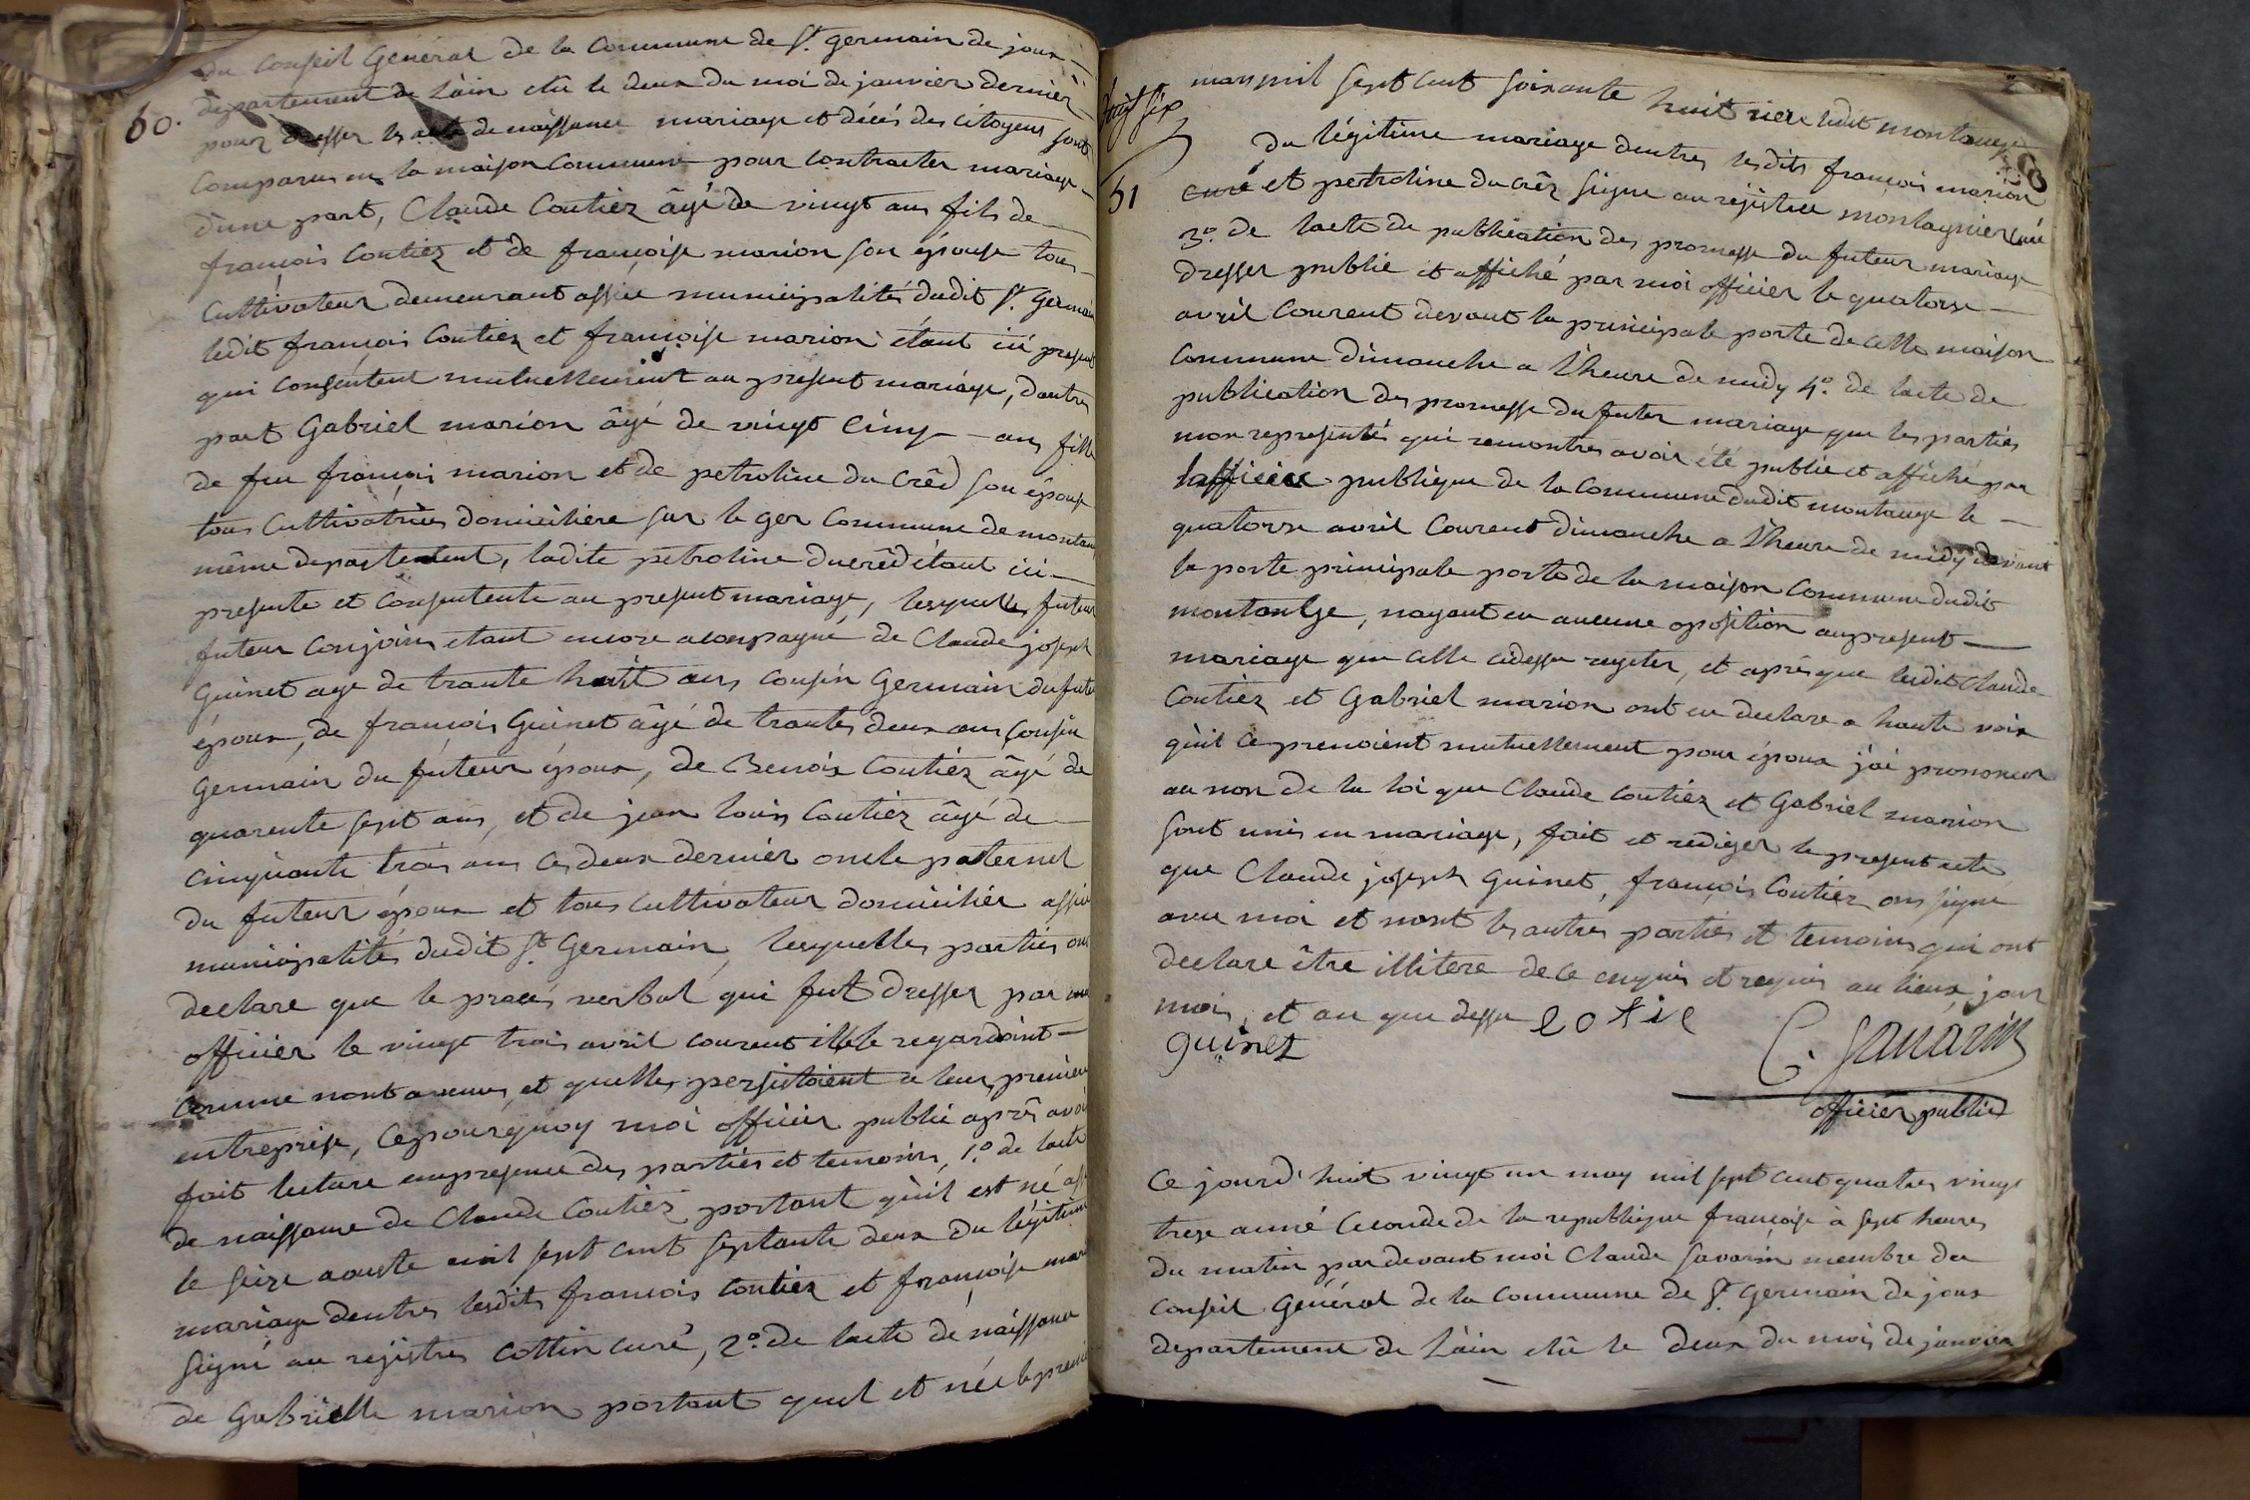 du Conseil Général de la Commune de St. germain de joux
60. département de Lâin elû le deux du moi de janvier dernier
pour dresser les acte de naissance mariage et décés des citoyens sont
Comparus en la maison Commune pour Contracter mariage
d'une part, Claude Coutiez âgé de vingt ans fils de
françois Coutiez et de françoise marion son épouse tous
Cultivateur demeurant assive municipalités dudit St. Germain
ledit françois Coutiez et françoise marion étant ici present
qui Consentent mutuellement au present mariage, d'autres
part Gabriel marion âgé de vingt Cinq ans fille
de feu françois marion et de petroline du Crêd son épouse
tous Cultivatrices domicilière sur le ger Commune de montan
même departement, ladite petroline ducrêd étant ici
presente et Consentente au present mariage, lesquelles futur
futeur Conjoins etant encore acompagné de Claude joseph
Guinet age de trante huit ans Cousin Germain du futur
époux, de françois Guinet âgé de trante deux ans Cousin
Germain du futeur époux, de Benoix Coutiez âgé de
quarente sept ans, et de jean louis Coutiez âgé de
Cinquante trois ans Ces deux dernier oncle paternel
du futeur époux et tous Cultivateur domicilier assive
municipalités dudit St. Germain, lesquelles parties on
declare que le procés verbal qui fut dresser par moi
officier le vingt trois avril courent ille le regardoint
Comme nont avenus et quelles persistoient a leurs premiere
entreprise, Cepourquoy moi officier public aprês avoi
fait lecture enpresence des parties et temoins, 1.o de lacte
de naissance de Claude Coutiez portant qu'il est né ass
le seize aouste mil sept cent septante deux du légitime
mariage dentres lesdits françois Coutiez et françoise mari
signé au rejistres Cottin curé, 2.o de lacte de naissance
de Gabrielle marion portant quel et née le premie
mars mil sept cent soixante huit riere ledit montange
vingt six
du légitime mariage dentres lesdits françois marion
61 curé et petroline du crêz signe au rejistre montagnier Curé
3.o de lacte de publication des promesse du futeur mariage
dresser publié et affiché par moi officier le quatorse
avril Courent devant la principale porte de cette maison
Commune dimanche a l'heure de midy 4.o de lacte de
publication des promesse du futer mariage que les parties
mon representés qui remontres avoir été publie et affiché par
lofficier publique de la Commune dudit montange le
quatorse avril Courent dimanche a l'heure de midy devant
la porte principale porte de la maison Commune dudit
montantge, nayant eu aucune oposition aupresent
mariage que celle cidessu rejeter, et aprês que lesdit Claude
Coutiez et Gabriel marion ont eu declare a haute voix
qu'il Ce prenoient mutuellement pour époux j'ai prononcer
au non de la loi que Claude Coutiez et Gabriel marion
sont unis en mariage, fait et rediger le present acte
que Claude joseph Guinet, françois Coutiez ons signé
avec moi et nont les autres parties et temoins qui ont
declare être illitere de ce enquis et requis au lieux, jour
moi, et an que dessu
Guinet
C. Savarin
officier public
Ce jourd'huit vingt un may mil sept cent quatres vingt
treze anné seconde de la republique françoise à sept heures
du matin par devant moi Claude Savarin membre du
Conseil Général de la Commune de St. Germain de joux
departement de Lâin elû le deux du mois de janvier